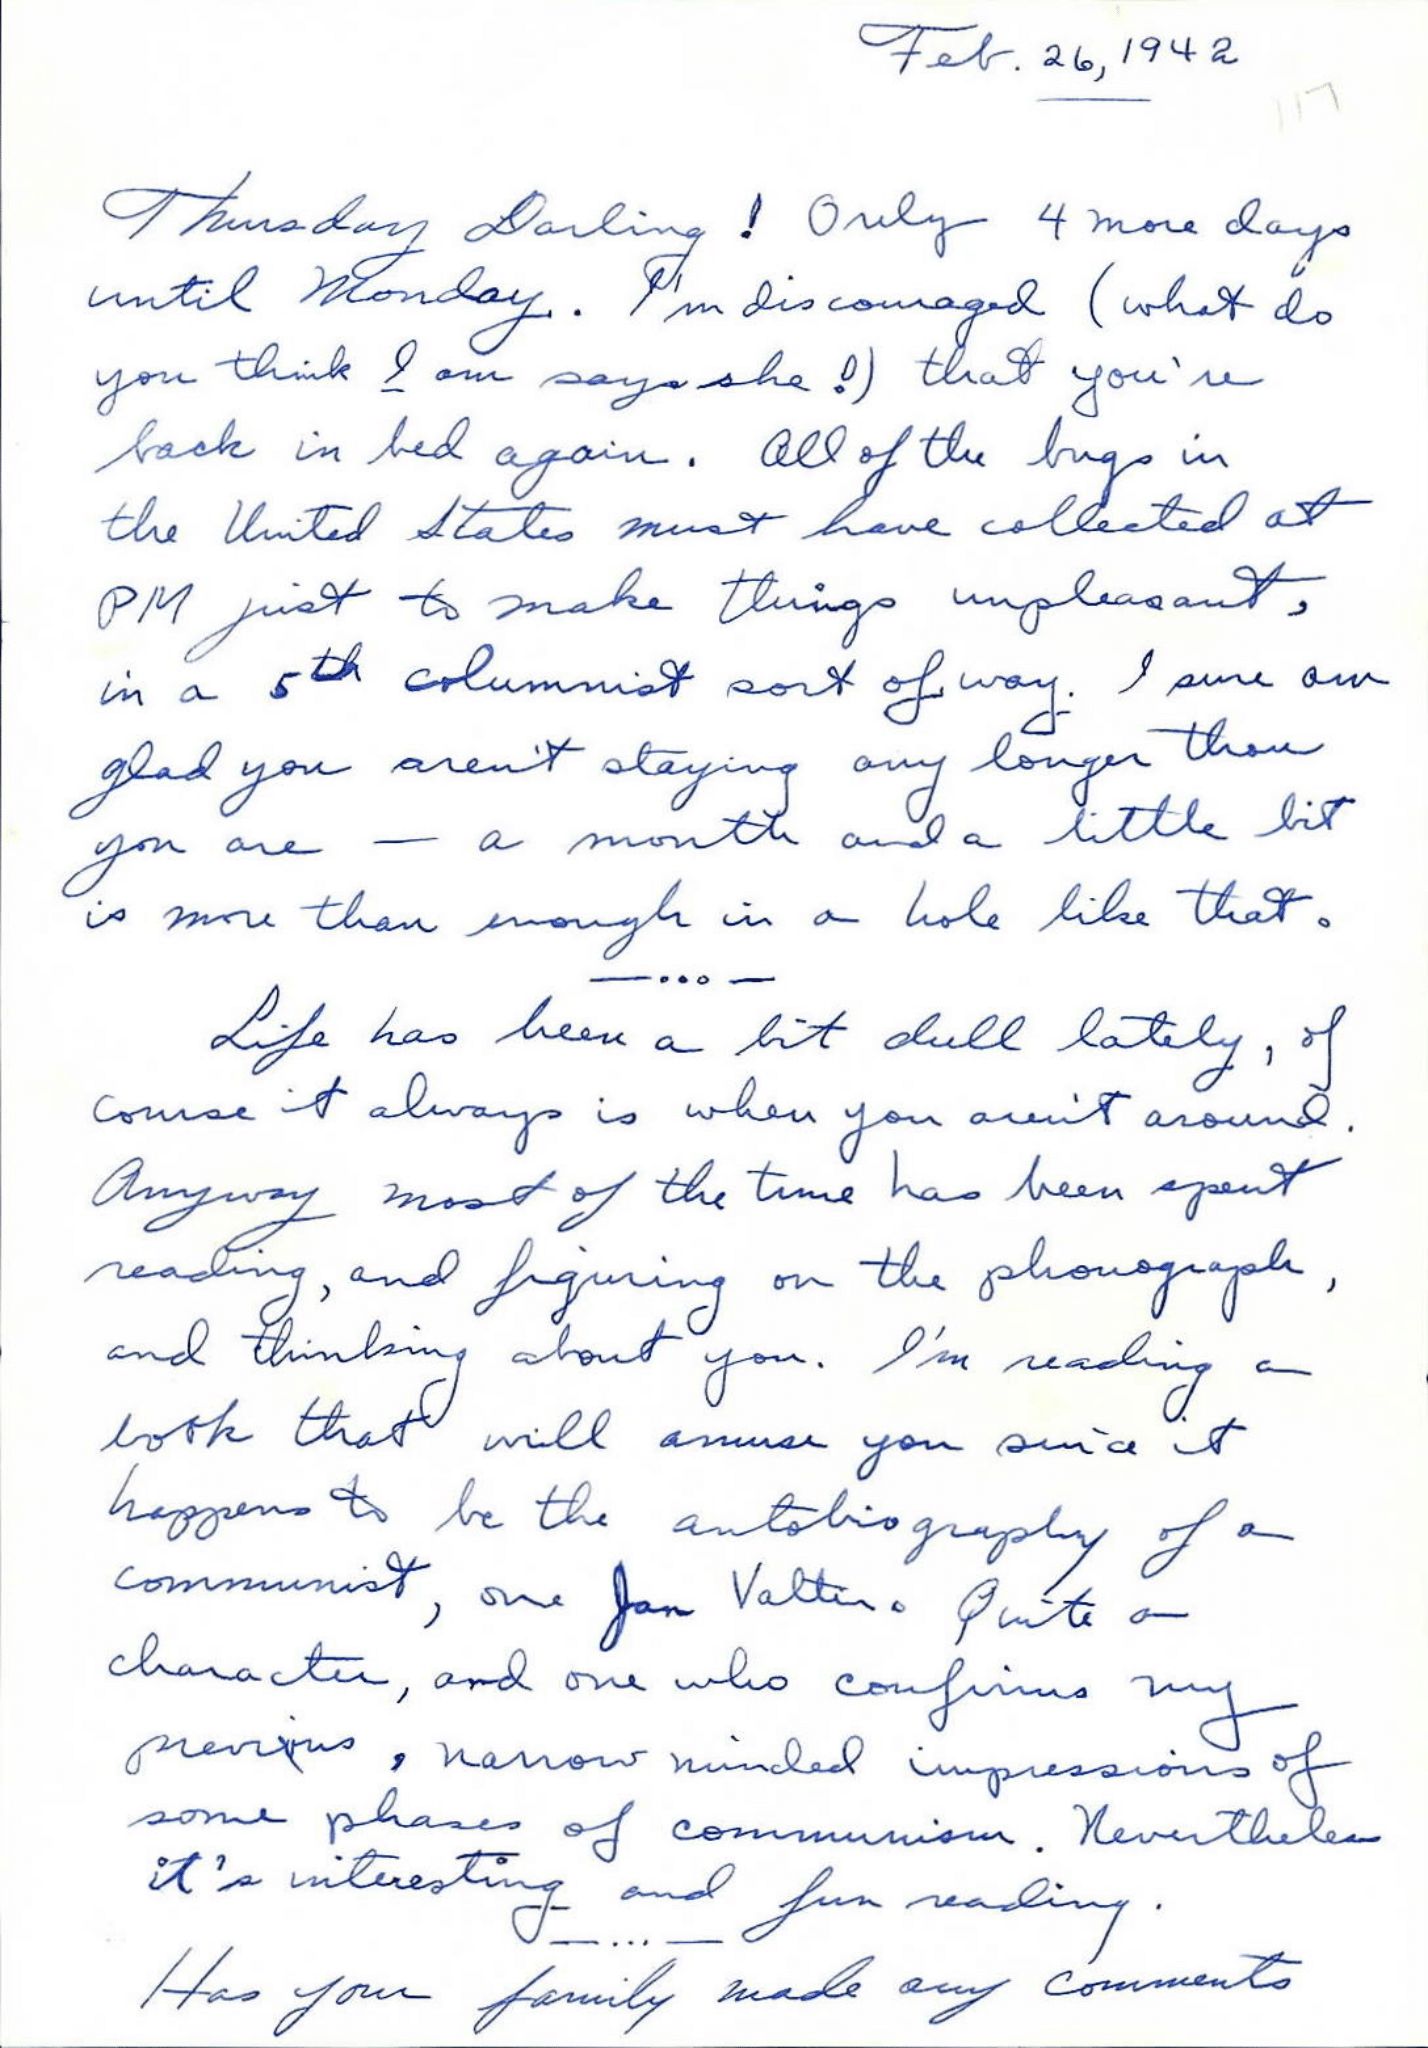 Feb. 26, 1942
117
Thursday Darling! Only 4 more days
until Monday. I'm discouraged (what do
you think I am says she!) that you're
back in bed again. All of the bugs in
the United States must have collected at
PM just to make things unpleasant,
in a 5th columnist sort of way. I sure am
glad you aren't staying any longer than
you are — a month and a little bit
is more than enough in a hole like that.
—...—
Life has been a bit dull lately, of
course it always is when you aren't around.
Anyway most of the time has been spent
reading, and figuring on the phonograph,
and thinking about you. I'm reading a
book that will amuse you since it
happens to be the autobiography of a
communist, one Jan Valtin. Quite a
character, and one who confirms my
previous, narrow minded impressions of
some phases of communism. Nevertheless
it's interesting and fun reading.
—...—
Has your family made any comments